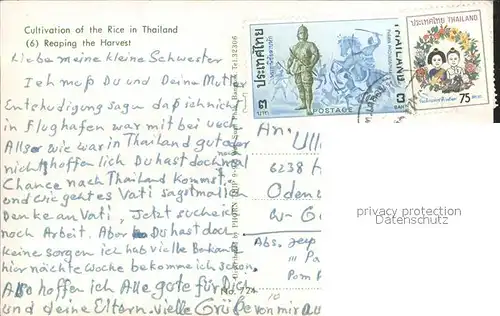 Cultivation of the Rice in Thailand
(6) Reaping the Harvest
Liebe meine kleine Schwester
Ich muß Du und Deine Mutter
Entschudigung sagen daß ich nich
in Flughafen war mit bei euch
Allso wie war in Thailand gut oder
nicht hoffen lich Du hast doch mal
Chance nach Thailand kommst,
und wie gehtes Vati sagst mal ich
Denke an Vati, Jetzt suche ich
noch Arbeit. Aber Du hast doch
keine sorgen ich hab vielle Bekann
hier nächte Woche bekomme ich schon.
Also hoffen ich Alle gute für Dich
und deine Eltern. vielle Grüße von mir au
No. 724
Tel. 32306
ประเทศไทย
THAILAND
๓
บาท
POSTAGE
3
BAHT
ประเทศไทย THAILAND
75
An: Ull
6238 H
Oden
W-G
Abs.
privacy protection
Datenschutz